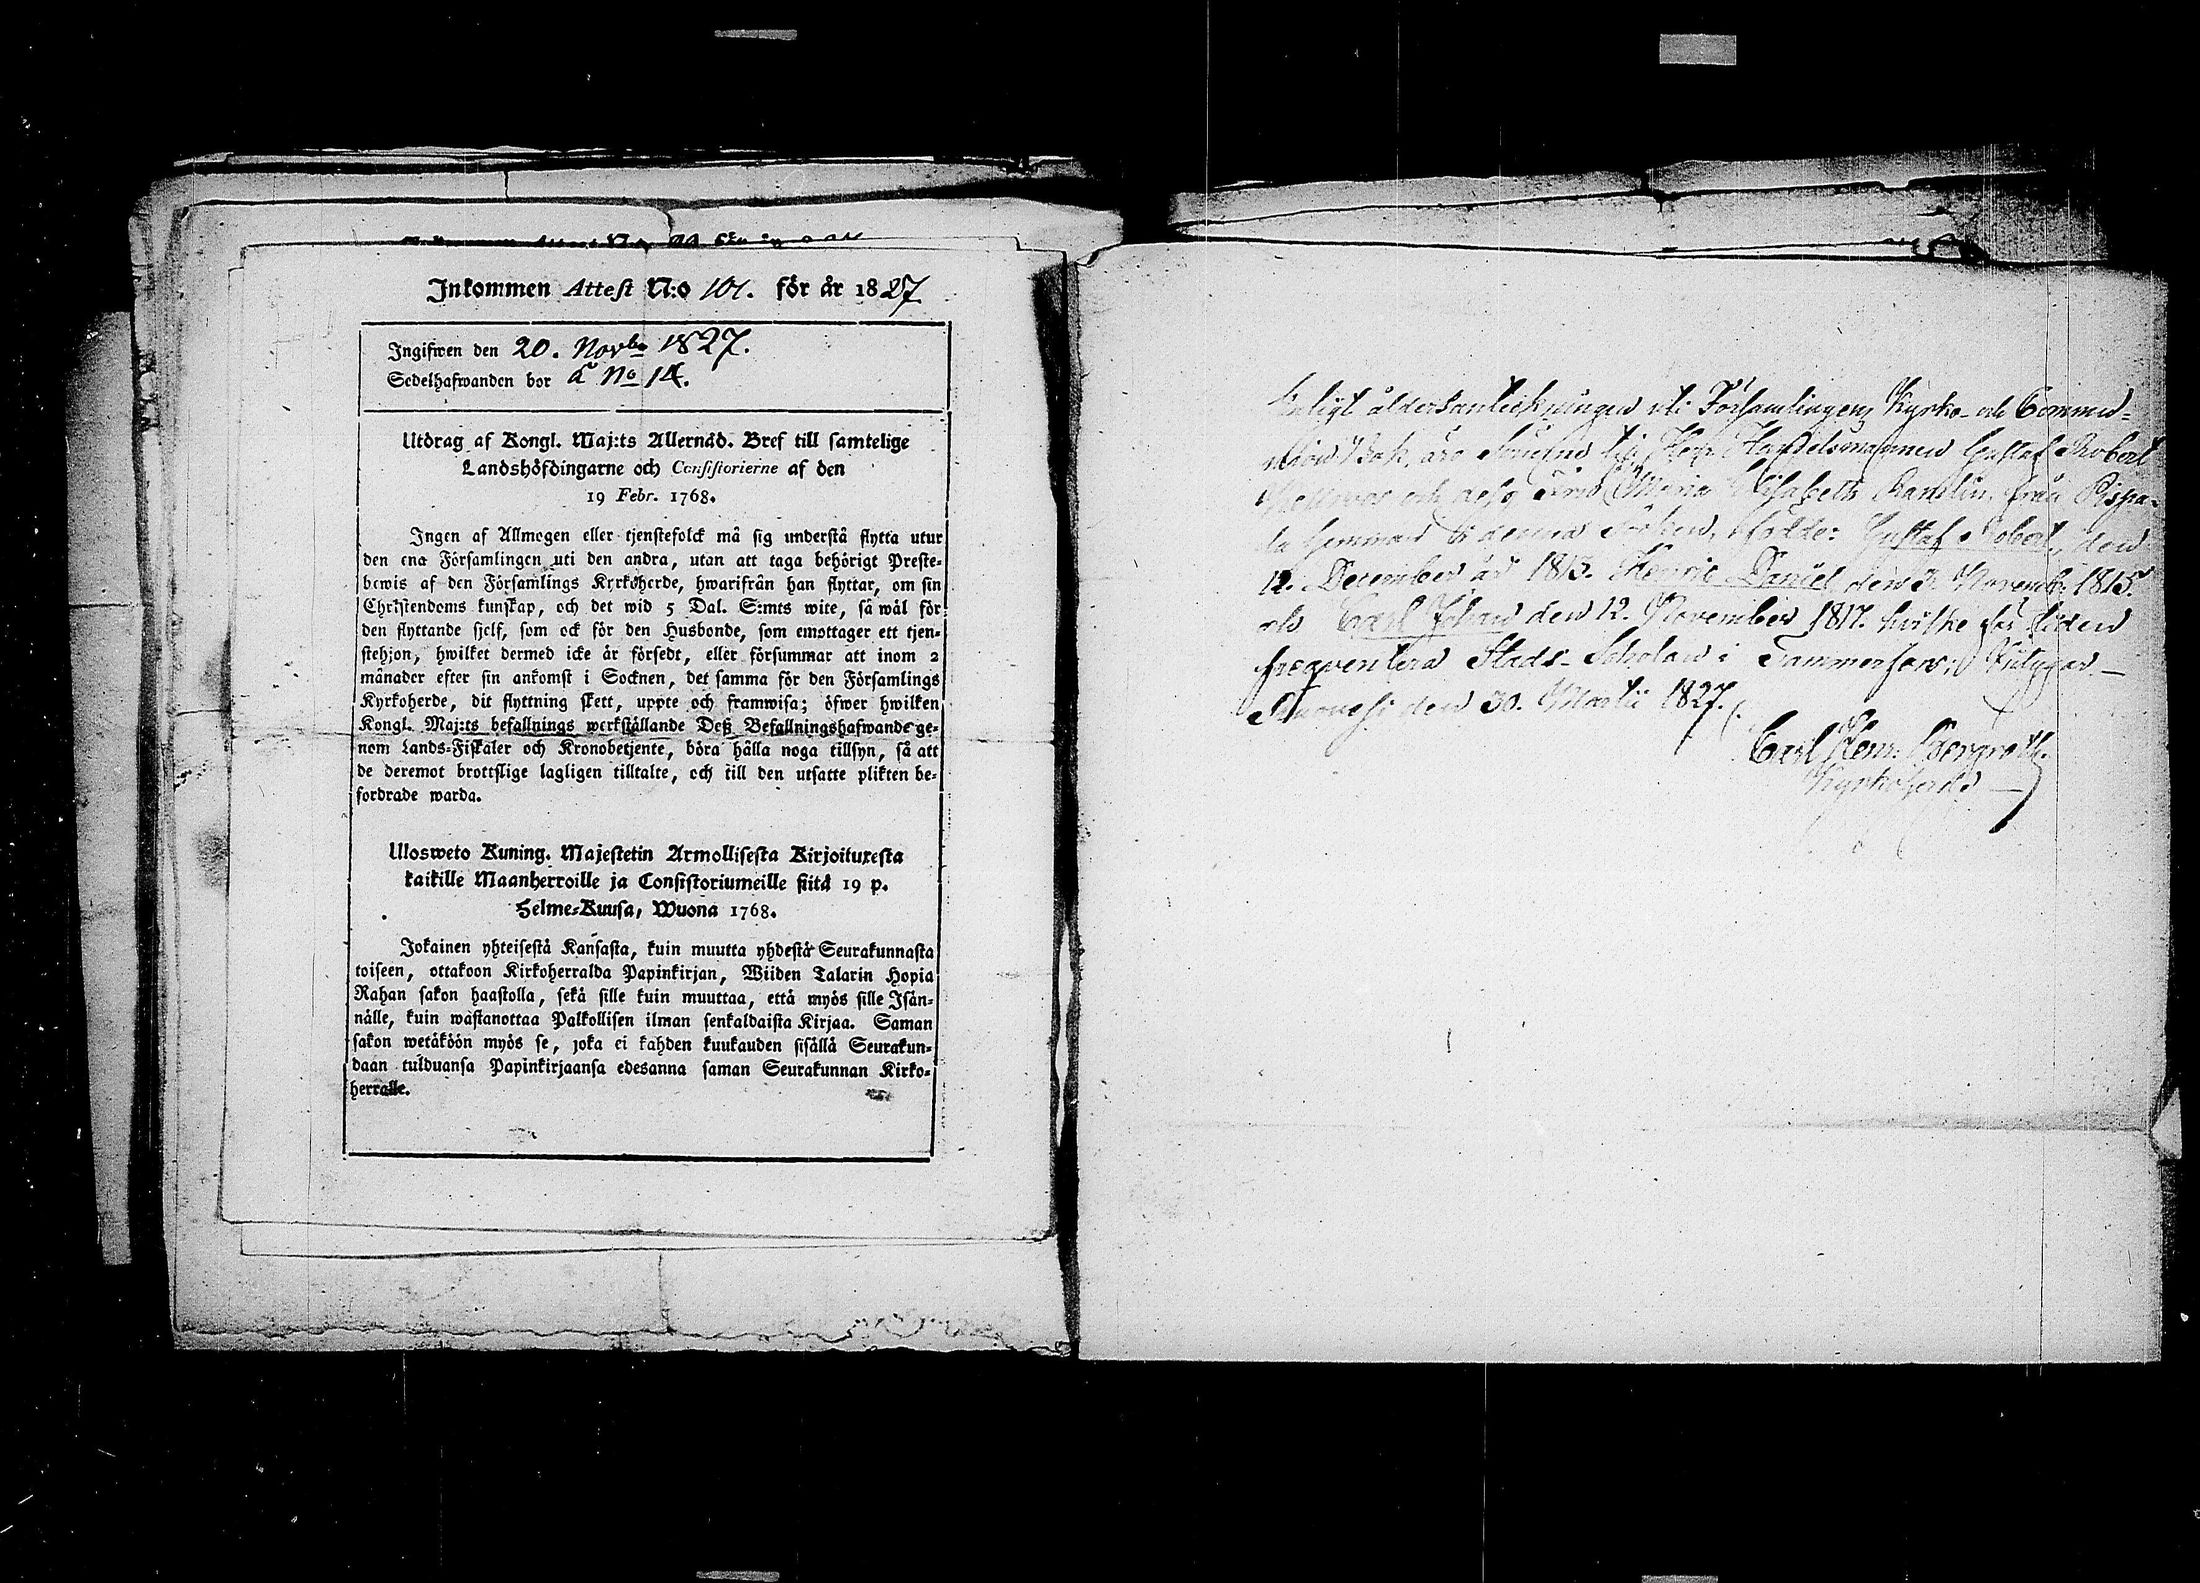 Inkommen Attest N:o 101. för år 1827
Ingifwen den 20. Novbr 1827.
Sedelhafwanden bor å No 14.
Utdrag af Kongl. Maj:ts Allernåd. Bref till samtelige
Landshöfdingarne och Consistorierne af den
19 Febr. 1768.
Ingen af Allmogen eller tjenstefolck må sig understå flytta utur
den ena Församlingen uti den andra, utan att taga behörigt Preste-
bewis af den Församlings Kyrkoherde, hwarifrån han flyttar, om sin
Christendoms kunskap, och det wid 5 Dal. S:mts wite, så wäl för
den flyttande sjelf, som ock för den Husbonde, som emottager ett tjen-
stehjon, hwilket dermed icke är försedt, eller försummar att inom 2
månader efter sin ankomst i Socknen, det samma för den Församlings
Kyrkoherde, dit flyttning skett, uppte och framwisa; öfwer hwilken
Kongl. Maj:ts befallnings werkställande Deß Befallningshafwande ge-
nom Lands-Fiskaler och Kronobetjente, böra hålla noga tillsyn, så att
de deremot brottslige lagligen tilltalte, och till den utsatte plikten be-
fordrade warda.
Ulosweto Kuning. Majestetin Armollisesta Kirjoituxesta
kaikille Maanherroille ja Consistoriumeille siitä 19 p.
Helme-Kuusa, Wuona 1768.
Jokainen yhteisestä Kansasta, kuin muutta yhdestä Seurakunnasta
toiseen, ottakoon Kirkoherralda Papinkirjan, Wiiden Talarin Hopia
Rahan sakon haastolla, sekä sille kuin muuttaa, että myös sille Isän-
nälle, kuin wastanottaa Palkollisen ilman senkaldaista Kirjaa. Saman
sakon wetäköön myös se, joka ei kahden kuukauden sisällä Seurakun-
daan tulduansa Papinkirjaansa edesanna saman Seurakunnan Kirko-
herralle.
Enligt ålders anteckningen uti Församlingens Kyrko- och Commu-
nion Bok, äro Sönerne till Herr Handelsmannen Gustaf Robert
och Maria Elisabeth från
hemman i denna Socken, födde: Gustaf Robert, den
12. December år 1813. Henric Daniel den 3. Novemb. 1815.
och Carl Johan den 12. November 1817. hvilke för tiden
freqventera Stads-Scholan i Tammerfors; Intygar. —
den 30. Martii 1827.
Carl Henr. Bergroth.
Kyrkoherde